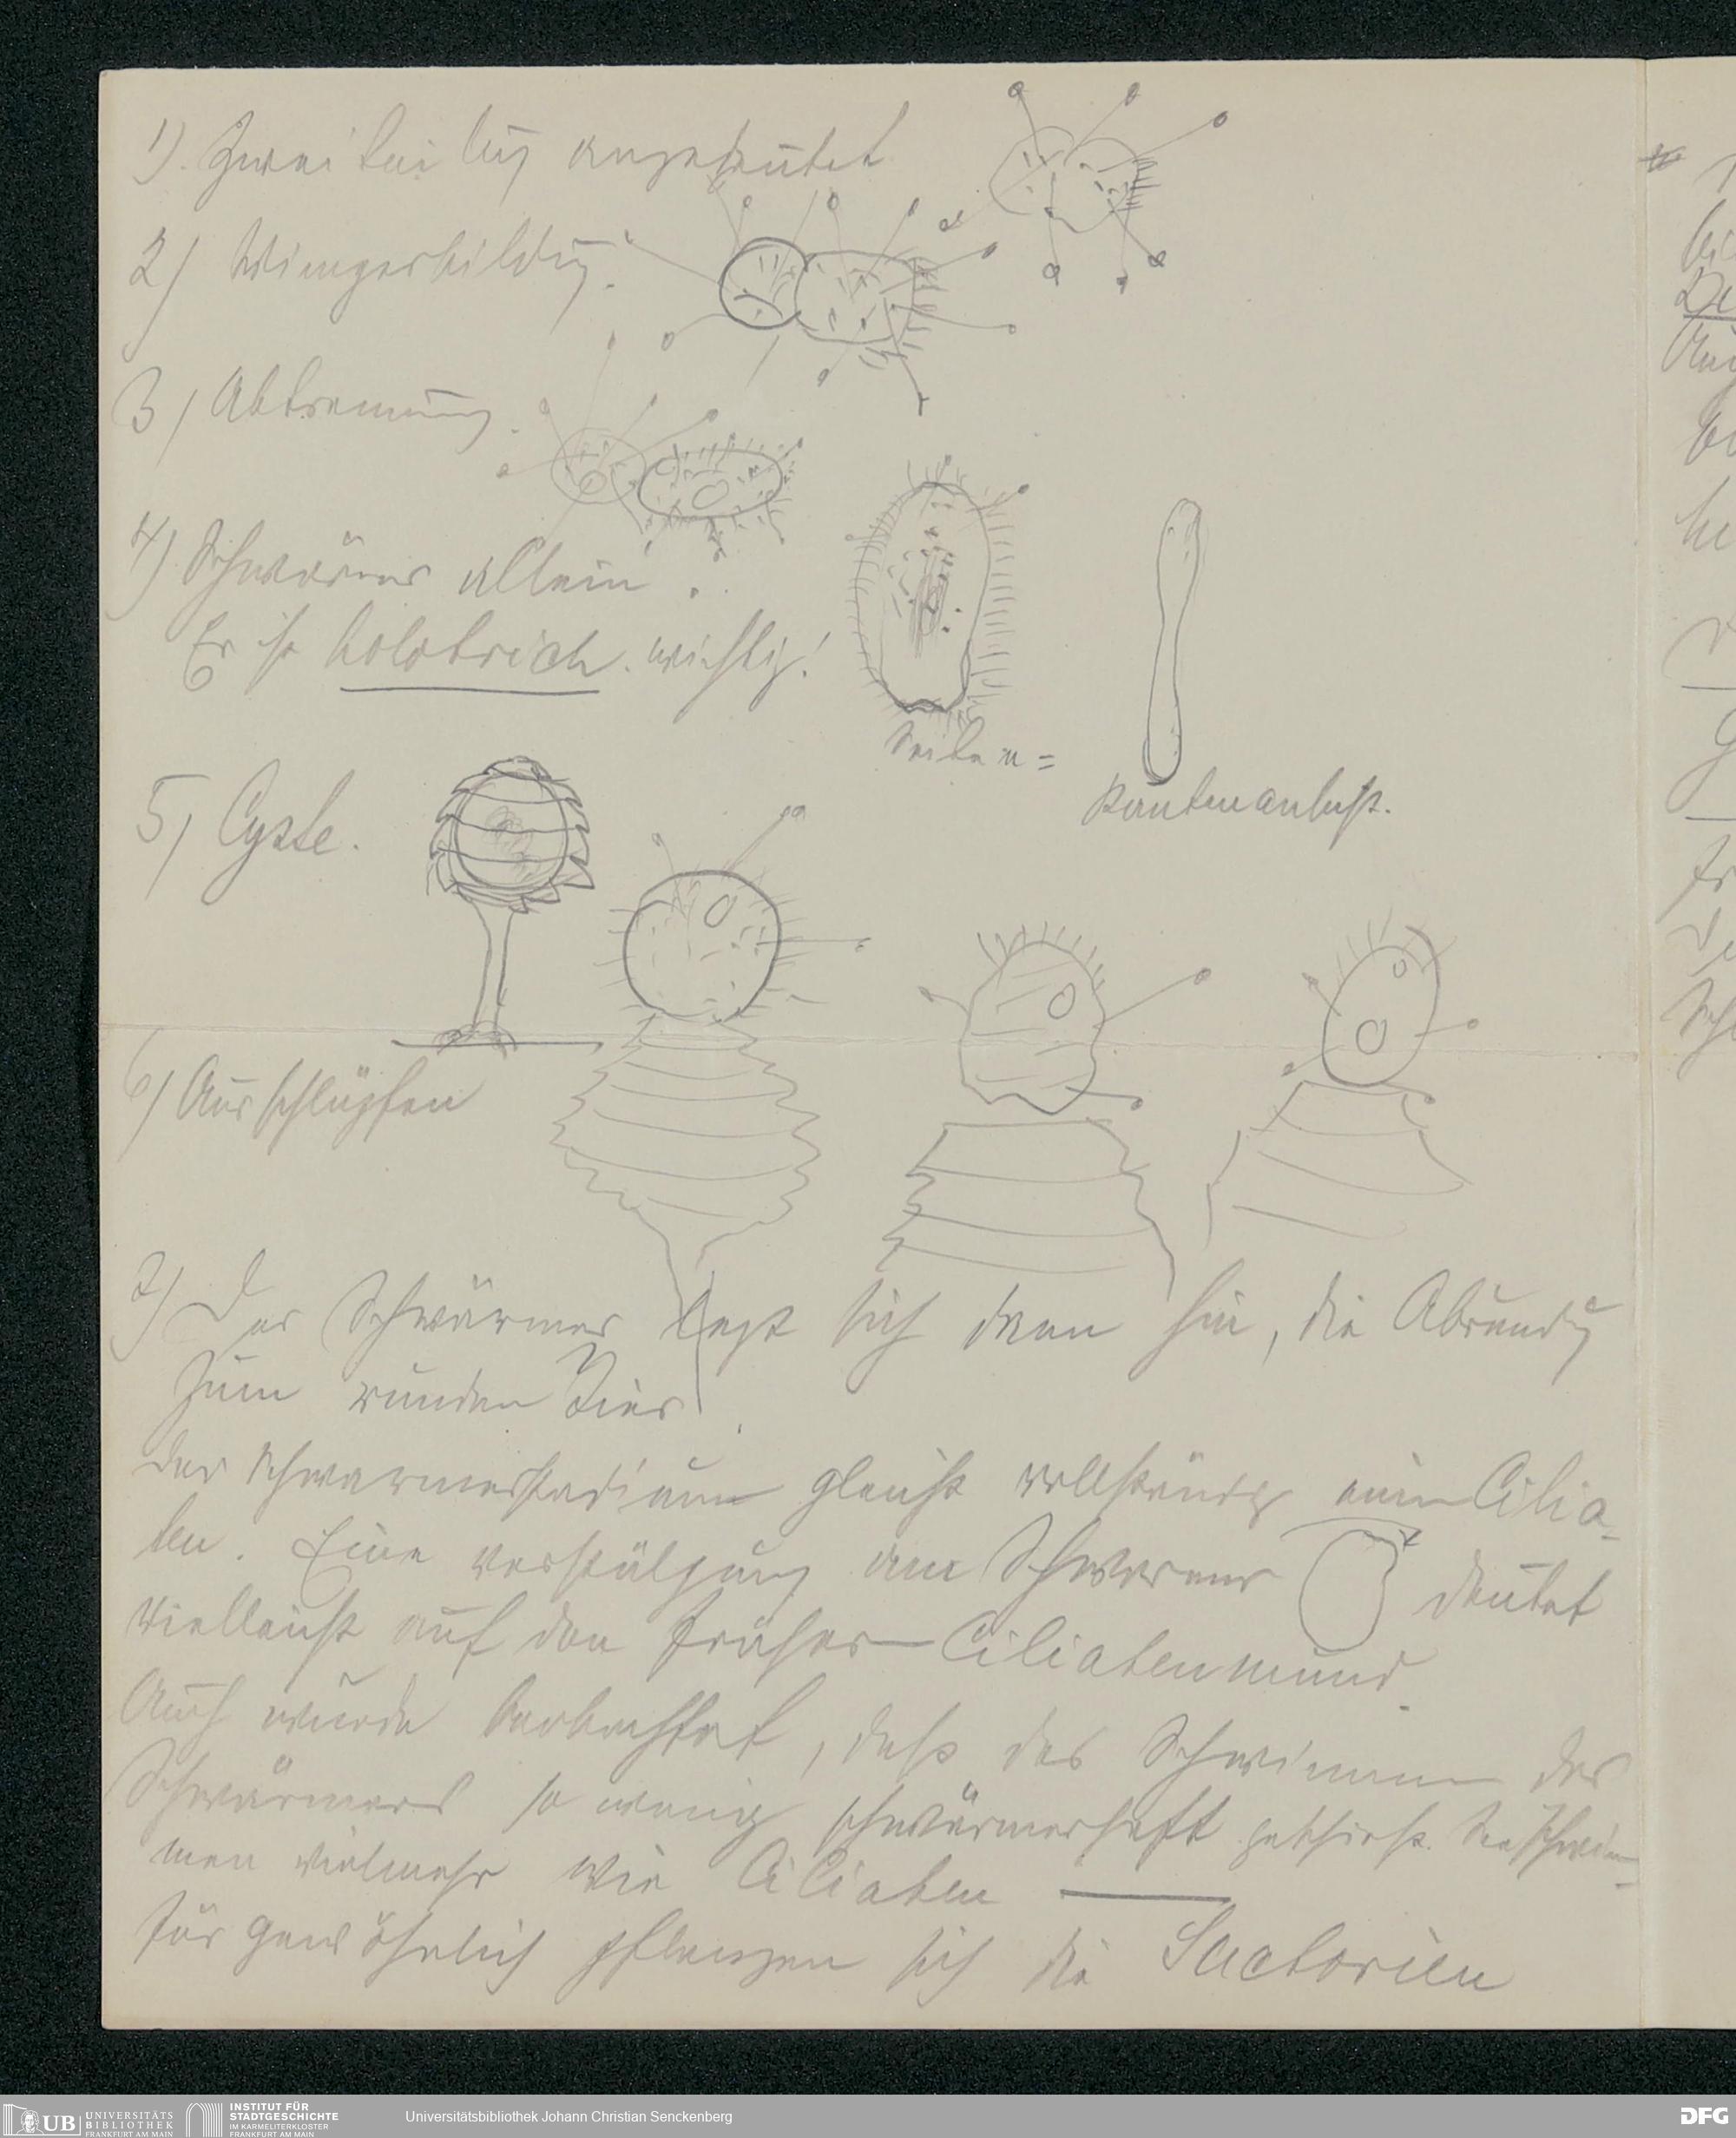 1). Zweiteilung angedeutet
2) Wimperbildung.
3) Abtrennung.
4) Schwärmer allein.
Er ist holotrich. wichtig!
Seiten =
Kantenansicht.
5) Cyste.
6) Ausschlüpfen
7) Der Schwärmer legt sich dann hin, die Abrundg
zum runden Tier
Das Schwärmerstadium gleicht vollständig einem Cilia-
ten. Eine am Schwärmer deutet
vielleicht auf den früheren Ciliatenmund.
Auch wurde beobachtet, daß das Schwimmen des
Schwärmers so wenig schwärmerhaft geschieht. Sie schwim-
men vielmehr wie Ciliaten
Für gewöhnlich pflanzen sich die Suctorien
UB UNIVERSITÄTS
BIBLIOTHEK
FRANKFURT AM MAIN
INSTITUT FÜR
STADTGESCHICHTE
IM KARMELITERKLOSTER
FRANKFURT AM MAIN
Universitätsbibliothek Johann Christian Senckenberg
DFG